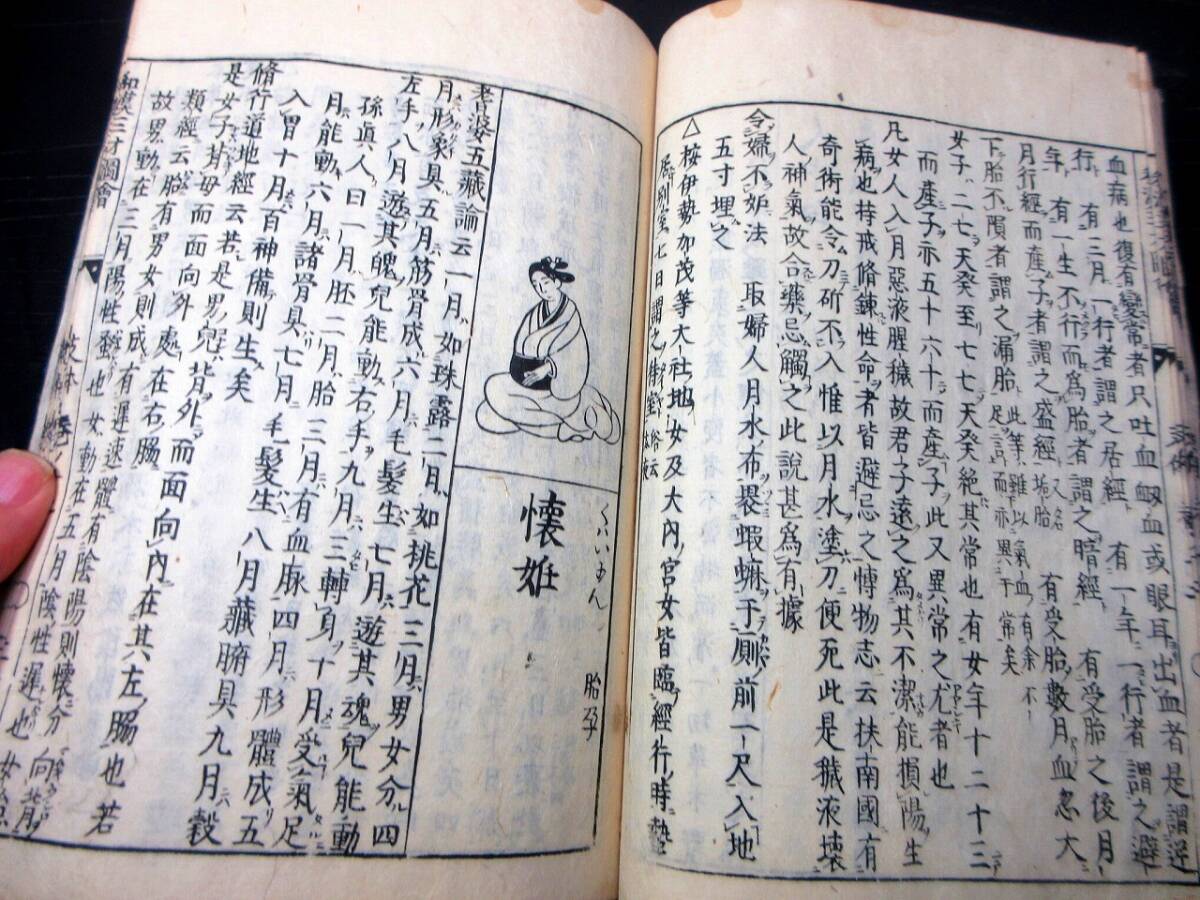 血病也復有變常者只吐血衂血或眼耳出血者是謂逆
行有三月一行者謂之居經有一年一行者謂之避
年有一生不行而爲胎者謂之暗經有受胎之後月
月行經而產子者謂之盛經又名垢胎有受胎數月血忽大
下胎不隕者謂之漏胎此等雖以氣血有餘不足言而亦異于常矣
女子二七天癸至七七天癸絕其常也有女年十二十三
而產子亦五十六十而產子此又異常之尤者也
凡女人入月惡液腥穢故君子遠之爲其不潔能損陽生
病也持戒脩鍊性命者皆避忌之博物志云扶南國有
奇術能令刀斫不入惟以月水塗刀便死此是穢液壞
人神氣故合藥忌觸之此說甚爲有據
令婦不妒法取婦人月水布裹蝦蟆于厠前一尺入地
五寸埋之
△按伊勢加茂等大社地女及大內宮女皆臨經行時蟄
居別室七日謂之
くハいにん
懷妊
胎孕
耆婆五藏論云一月如珠露二月如桃花三月男女分四
月形象具五月筋骨成六月毛髮生七月遊其魂兒能動
左手八月遊其魄兒能動右手九月三轉身十月受氣足
孫眞人曰一月胚二月胎三月有血脉四月形體成五
月能動六月諸骨具七月毛髮生八月藏腑具九月穀
入胃十月百神備則生矣
脩行道地經云若是男兒背外而面向內在其左脇也若
是女子背母而面向外處在右脇
類經云胎有男女則成有遲速體有陰陽則懷分向背
故男動在三月陽性蚤也女動在五月陰性遲也
和漢三才圖會